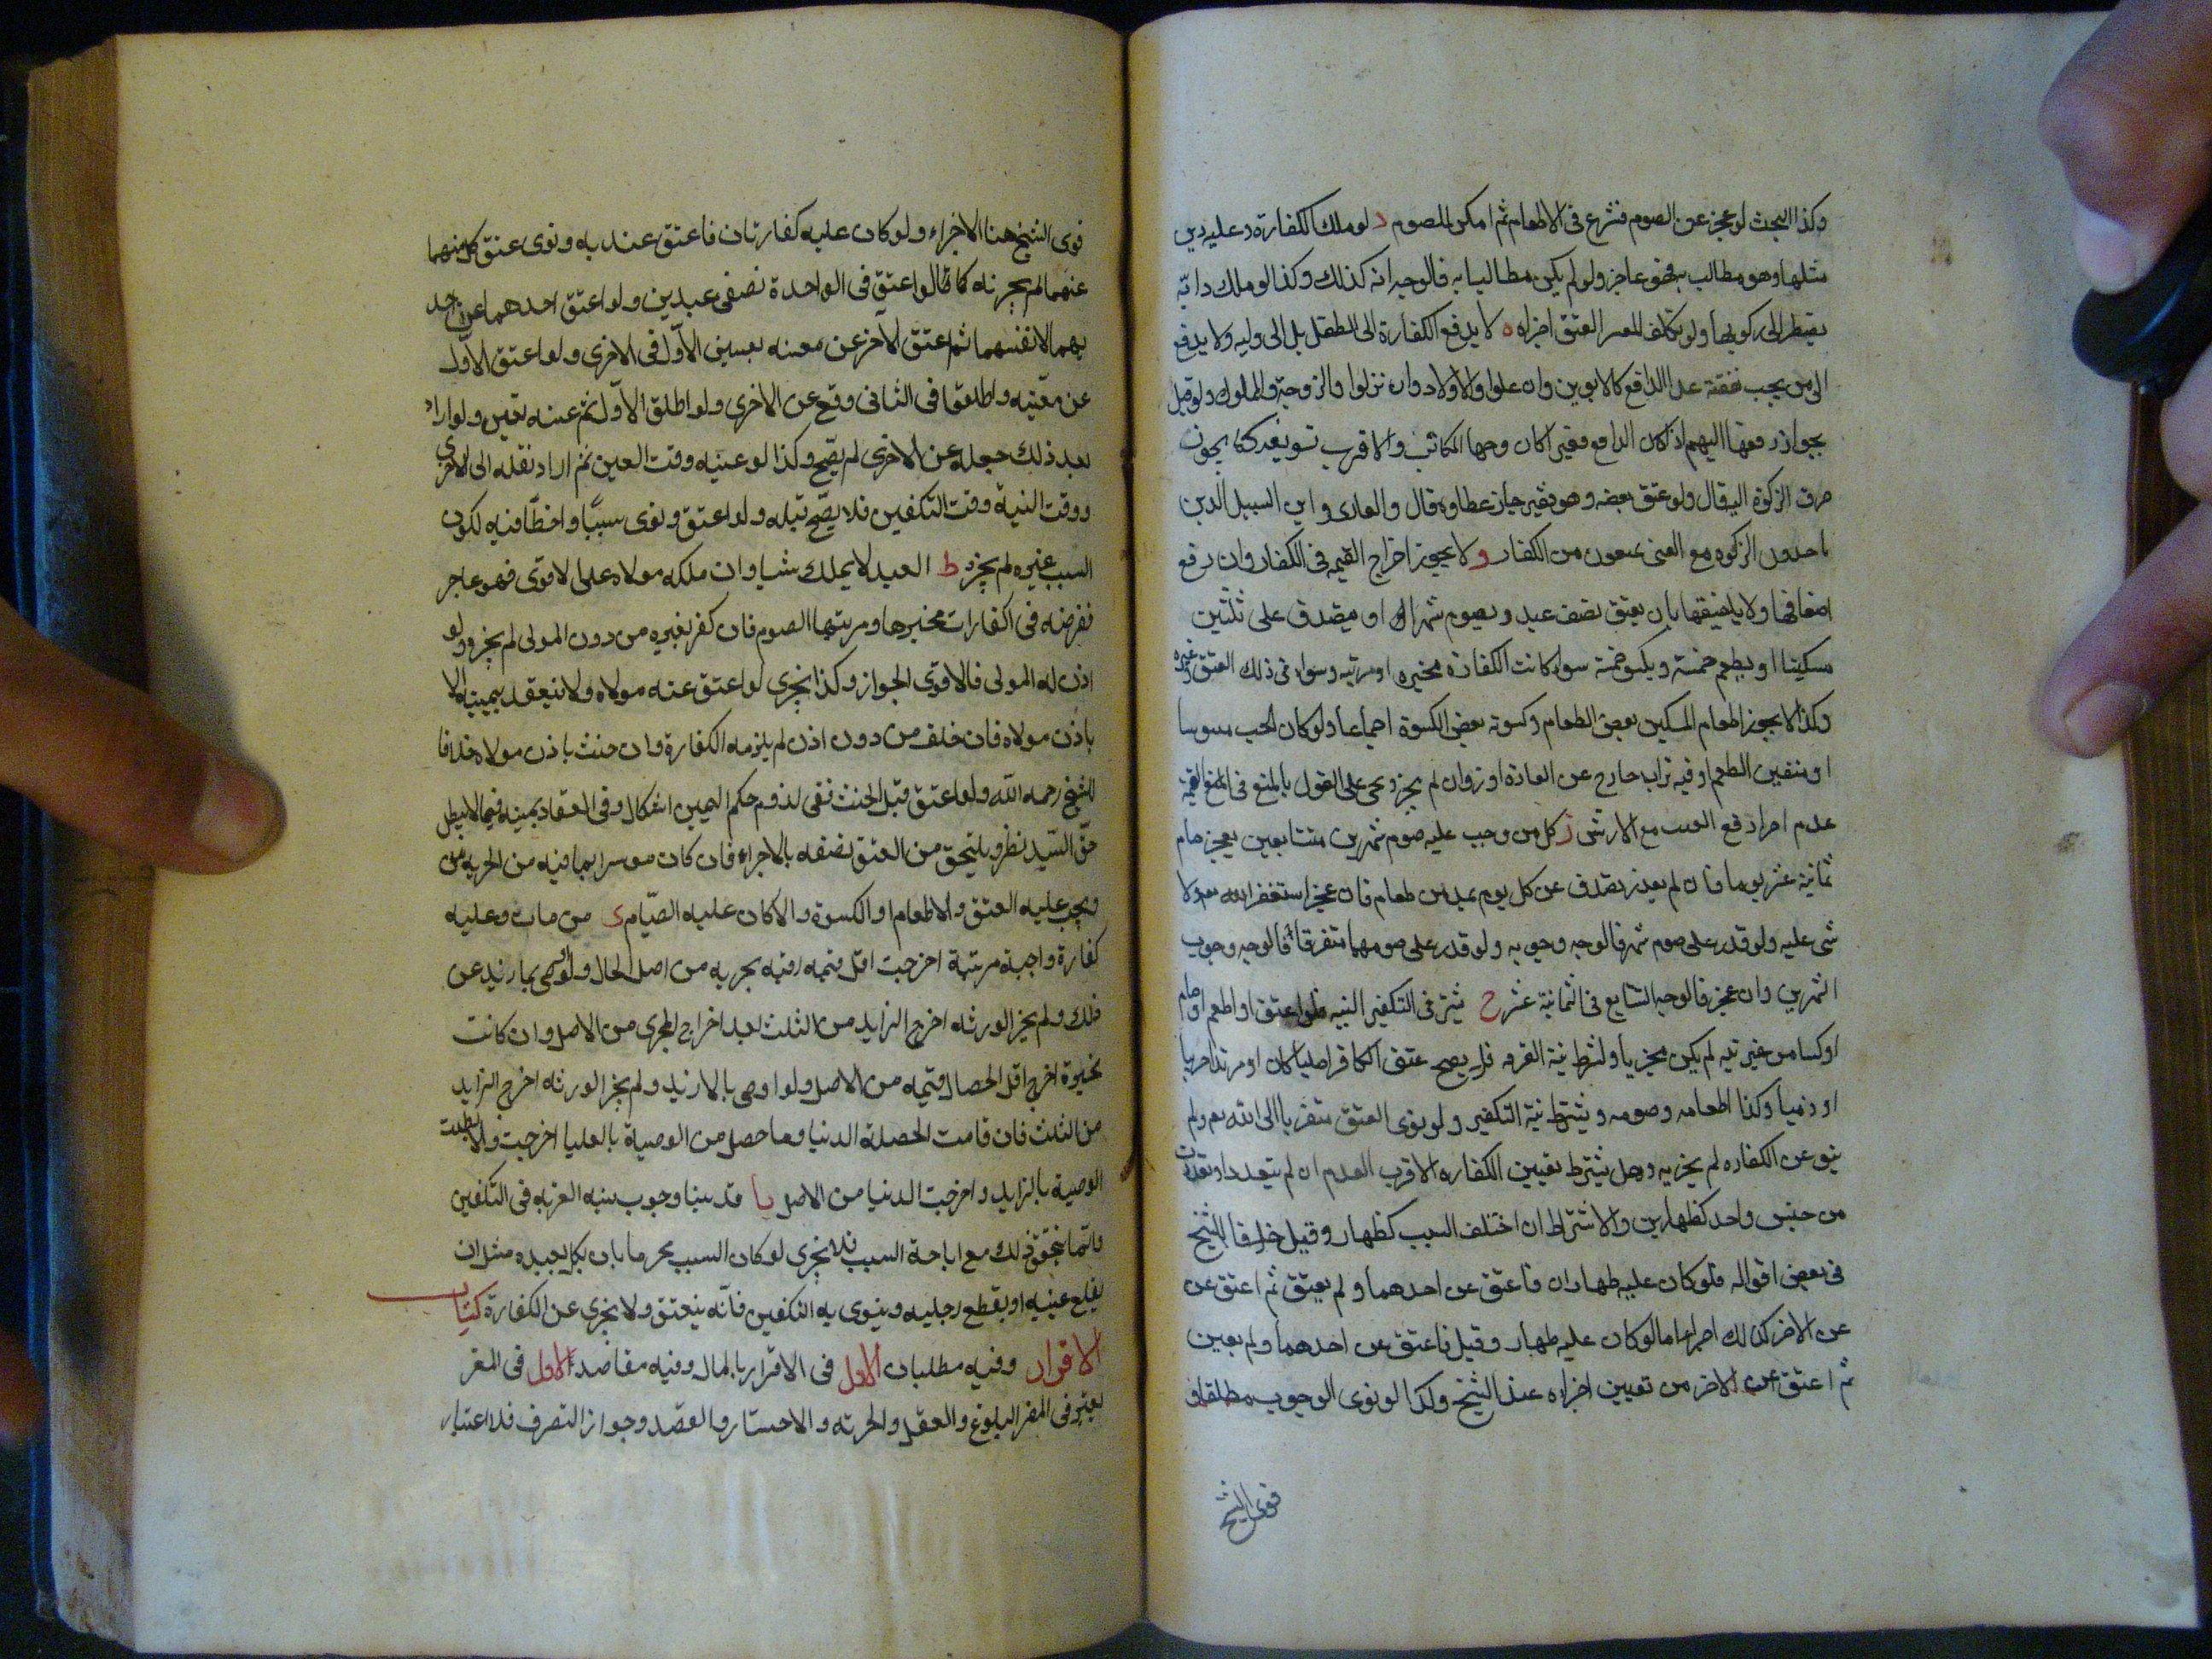 وكذا البحث لو عجز عن الصوم فشرع في الاطعام ثم امكن الصوم د لو ملك الكفارة وعليه دين
مثلها وهو مطالب به فهو عاجز ولو لم يكن مطالبا به فالوجه انه كذلك وكذا لو ملك دابّة
يضطر الى ركوبها ولو تكلف المعسر العتق اجزاه ه لا يدفع الكفارة الى الطفل بل الى وليه ولا يدفع
الى من يجب نفقته على الدافع كالابوين وان علوا والاولاد وان نزلوا والزوجة والمملوك ولو قيل
بجواز دفعها اليهم اذا كان الدافع فقيرا كان وجها المكاتب والاقرب تسويغه كما يجوز
صرف الزكوة اليه قال ولو عتق بعضه وهو فقير جاز عطاوه قال والغارم وابن السبيل الذين
ياخذون الزكوة مع الغنى يمنعون من الكفار و لا يجوز اخراج القيمه في الكفار وان دفع
اضعافها ولا يلفيقها بان يعتق نصف عبد ويصوم شهرا او يتصدق على ثلثين
مسكينا او يطعم خمسة ويكسو خمسة سواء كانت الكفارة مخيره او مرتبه وسواء في ذلك العتق وغيره
وكذا لا يجوز اطعام المسكين بعض الطعام وكسوة بعض الكسوة اجماعا ولو كان الحب مسوسا
او متغير الطعم او فيه تراب خارج عن العادة او زوان لم يجز ويجى على القول بالمنع في القيمة
عدم اجزا دفع المعيب مع الارش ز كل من وجب عليه صوم شهرين متتابعين يعجز صام
ثمانية عشر يوما فان لم يقدر تصدق عن كل يوم بمدين طعام فان عجز استغفر الله تعه ولا
شى عليه ولو قدر على صوم شهر فالوجه وجوبه ولو قدر على صومهما متفرقا فالوجه وجوب
الشهرين وان عجز فالوجه التتابع في الثمانية عشر ح يشترط في التكفير النيه فلو اعتق او اطعم او صام
او كسا من غير نيه لم يكن مجزيا ولشرط نية القربه فلا يصح عتق الكافر اصليا كان او مرتدا حربيا
او ذميا وكذا اطعامه وصومه ويشترط نية التكفير ولو نوى العتق متقربا الى الله تعه ولم
ينو عن الكفاره لم يجزيه وهل يشترط تعيين الكفاره الاقرب العدم ان لم يتعدد او تعددت
من جنس واحد كظهارين والاشتراط ان اختلف السبب كظهار وقيل خلافا للشيخ
في بعض اقواله فلو كان عليه ظهاران فاعتق عن احدهما ولم يعتق ثم اعتق عن
عن الاخر كذلك اجزا اما لو كان عليه ظهار وقيل فاعتق عن احدهما ولم يعين
ثم اعتق عن الاخر من تعيين اجزاه عند الشيخ وكذا لو نوى الوجوب مطلقا
قوى الشيخ
قوى الشيخ هنا الاجزاء ولو كان عليه كفارتان فاعتق عبديه ونوى عتق كل منهما
عنهما لم يجزئه كما قالوا عتق في الواحدة نصفى عبدين ولو اعتق احدهما عن احد
يهما لا نفسهما ثم اعتق الاخر عن معينه يعين الاول في الاخرى ولو اعتق الاول
عن معينه واطلقها في الثاني وقع عن الاخرى ولو اطلق الاول ثم عينه تعين ولو اراد
بعد ذلك جعله عن الاخرى لم يصح وكذا لو عيّنه وقت العين ثم اراد نقله الى الاخرى
ووقت النية وقت التكفير فلا يصح قبله ولو اعتق ونوى سببا واخطا فيه لكون
السبب غيره لم يجزه ط العبد لا يملك شيا وان ملكه مولاه على الاقوى فهو عاجز
ففرضه في الكفارات مخيرها ومرتبها الصوم فان كفر بغيره من دون المولى لم يجز ولو
اذن له المولى فالاقوى الجواز وكذا يجزى لو اعتق عنه مولاه ولا تنعقد يمينه الا
باذن مولاه فان حلف من دون اذن لم يلزمه الكفارة وان حنث باذن مولاه خلافا
للشيخ رحمه الله ولو اعتق قبل الحنث ففى لزوم حكم اليمين اشكال وفي انعقاد يمينه فيما لا يبطل
حق السّيد نظر ويلتحق من العتق نصفه بالاحرار فان كان موسرا بما فيه من الحريه
وجب عليه العتق والاطعام او الكسوة والا كان عليه الصّيام ى من مات وعليه
كفارة واجبة مرتبة اخرجت اقل قيمه رقبه يجزيه من اصل المال ولو اوصى بما يزيد عن
ذلك ولم يجز الورثه اخرج الزايد من الثلث بعد اخراج المجزى من الاصل وان كانت
مخيرة اخرج اقل الخصال قيمه من الاصل ولو اوصى بالازيد ولم يجز الورثه اخرج الزايد
من الثلث فان قامت الخصلة الدنيا وما حصل من الوصية بالعليا اخرجت والا بطلت
الوصية بالزايد واخرجت الدنيا من الاصل يا قد بينا وجوب نيه القربه في التكفير
وانما يتحقق ذلك مع اباحة السبب فلا يجزى لو كان السبب محرما بان نكل بعبده مثل ان
يقلع عينيه او يقطع رجليه وينوى به التكفير فانّه ينعتق ولا يجزى عن الكفارة كتاب
الاقرار وفيه مطلبان الاول في الاقرار بالمال وفيه مقاصد الاول في المقر
يعتبر في المقر البلوغ والعقل والحريه والاختيار والقصد وجواز التصرف فلا اعتبار